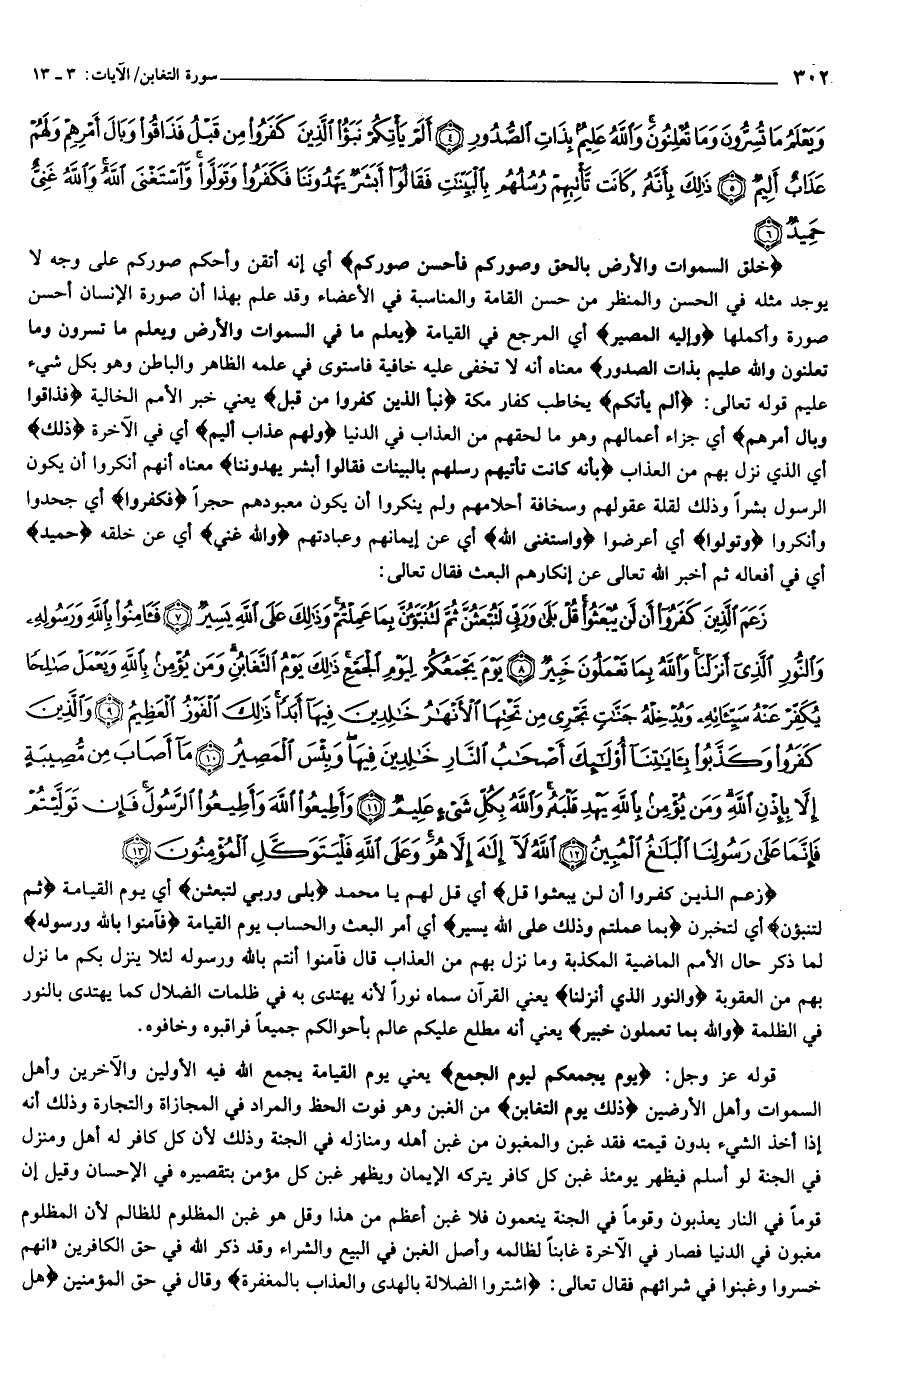 ٣٠٢ سورة التغابن/ الآيات: ٣ ـ ١٣
وَيَعْلَمُ مَا تُسِرُّونَ وَمَا تُعْلِنُونَ وَاللَّهُ عَلِيمٌ بِذَاتِ الصُّدُورِ ﴿٤﴾ أَلَمْ يَأْتِكُمْ نَبَؤُا الَّذِينَ كَفَرُوا مِن قَبْلُ فَذَاقُوا وَبَالَ أَمْرِهِمْ وَلَهُمْ
عَذَابٌ أَلِيمٌ ﴿٥﴾ ذَٰلِكَ بِأَنَّهُ كَانَت تَّأْتِيهِمْ رُسُلُهُم بِالْبَيِّنَٰتِ فَقَالُوا أَبَشَرٌ يَهْدُونَنَا فَكَفَرُوا وَتَوَلَّوا وَّاسْتَغْنَى اللَّهُ وَاللَّهُ غَنِيٌّ
حَمِيدٌ ﴿٦﴾
﴿خلق السموات والأرض بالحق وصوركم فأحسن صوركم﴾ أي إنه أتقن وأحكم صوركم على وجه لا
يوجد مثله في الحسن والمنظر من حسن القامة والمناسبة في الأعضاء وقد علم بهذا أن صورة الإنسان أحسن
صورة وأكملها ﴿وإليه المصير﴾ أي المرجع في القيامة ﴿يعلم ما في السموات والأرض ويعلم ما تسرون وما
تعلنون والله عليم بذات الصدور﴾ معناه أنه لا تخفى عليه خافية فاستوى في علمه الظاهر والباطن وهو بكل شيء
عليم قوله تعالى: ﴿ألم يأتكم﴾ يخاطب كفار مكة ﴿نبأ الذين كفروا من قبل﴾ يعني خبر الأمم الخالية ﴿فذاقوا
وبال أمرهم﴾ أي جزاء أعمالهم وهو ما لحقهم من العذاب في الدنيا ﴿ولهم عذاب أليم﴾ أي في الآخرة ﴿ذلك﴾
أي الذي نزل بهم من العذاب ﴿بأنه كانت تأتيهم رسلهم بالبينات فقالوا أبشر يهدوننا﴾ معناه أنهم أنكروا أن يكون
الرسول بشراً وذلك لقلة عقولهم وسخافة أحلامهم ولم ينكروا أن يكون معبودهم حجراً ﴿فكفروا﴾ أي جحدوا
وأنكروا ﴿وتولوا﴾ أي أعرضوا ﴿واستغنى الله﴾ أي عن إيمانهم وعبادتهم ﴿والله غني﴾ أي عن خلقه ﴿حميد﴾
أي في أفعاله ثم أخبر الله تعالى عن إنكارهم البعث فقال تعالى:
زَعَمَ الَّذِينَ كَفَرُوا أَن لَّن يُبْعَثُوا قُلْ بَلَىٰ وَرَبِّي لَتُبْعَثُنَّ ثُمَّ لَتُنَبَّؤُنَّ بِمَا عَمِلْتُمْ وَذَٰلِكَ عَلَى اللَّهِ يَسِيرٌ ﴿٧﴾ فَـَٔامِنُوا بِاللَّهِ وَرَسُولِهِ
وَالنُّورِ الَّذِي أَنزَلْنَا وَاللَّهُ بِمَا تَعْمَلُونَ خَبِيرٌ ﴿٨﴾ يَوْمَ يَجْمَعُكُمْ لِيَوْمِ الْجَمْعِ ذَٰلِكَ يَوْمُ التَّغَابُنِ وَمَن يُؤْمِنْ بِاللَّهِ وَيَعْمَلْ صَٰلِحًا
يُكَفِّرْ عَنْهُ سَيِّئَاتِهِ وَيُدْخِلْهُ جَنَّٰتٍ تَجْرِي مِن تَحْتِهَا الْأَنْهَٰرُ خَٰلِدِينَ فِيهَا أَبَدًا ذَٰلِكَ الْفَوْزُ الْعَظِيمُ ﴿٩﴾ وَالَّذِينَ
كَفَرُوا وَكَذَّبُوا بِـَٔايَٰتِنَا أُولَٰئِكَ أَصْحَٰبُ النَّارِ خَٰلِدِينَ فِيهَا وَبِئْسَ الْمَصِيرُ ﴿١٠﴾ مَا أَصَابَ مِن مُّصِيبَةٍ
إِلَّا بِإِذْنِ اللَّهِ وَمَن يُؤْمِنْ بِاللَّهِ يَهْدِ قَلْبَهُ وَاللَّهُ بِكُلِّ شَيْءٍ عَلِيمٌ ﴿١١﴾ وَأَطِيعُوا اللَّهَ وَأَطِيعُوا الرَّسُولَ فَإِن تَوَلَّيْتُمْ
فَإِنَّمَا عَلَىٰ رَسُولِنَا الْبَلَٰغُ الْمُبِينُ ﴿١٢﴾ اللَّهُ لَا إِلَٰهَ إِلَّا هُوَ وَعَلَى اللَّهِ فَلْيَتَوَكَّلِ الْمُؤْمِنُونَ ﴿١٣﴾
﴿زعم الذين كفروا أن لن يبعثوا قل﴾ أي قل لهم يا محمد ﴿بلى وربي لتبعثن﴾ أي يوم القيامة ﴿ثم
لتنبؤن﴾ أي لتخبرن ﴿بما عملتم وذلك على الله يسير﴾ أي أمر البعث والحساب يوم القيامة ﴿فآمنوا بالله ورسوله﴾
لما ذكر حال الأمم الماضية المكذبة وما نزل بهم من العذاب قال فآمنوا أنتم بالله ورسوله لئلا ينزل بكم ما نزل
بهم من العقوبة ﴿والنور الذي أنزلنا﴾ يعني القرآن سماه نوراً لأنه يهتدى به في ظلمات الضلال كما يهتدى بالنور
في الظلمة ﴿والله بما تعملون خبير﴾ يعني أنه مطلع عليكم عالم بأحوالكم جميعاً فراقبوه وخافوه.
قوله عز وجل: ﴿يوم يجمعكم ليوم الجمع﴾ يعني يوم القيامة يجمع الله فيه الأولين والآخرين وأهل
السموات وأهل الأرضين ﴿ذلك يوم التغابن﴾ من الغبن وهو فوت الحظ والمراد في المجازاة والتجارة وذلك أنه
إذا أخذ الشيء بدون قيمته فقد غبن والمغبون من غبن أهله ومنازله في الجنة وذلك لأن كل كافر له أهل ومنزل
في الجنة لو أسلم فيظهر يومئذ غبن كل كافر بتركه الإيمان ويظهر غبن كل مؤمن بتقصيره في الإحسان وقيل إن
قوماً في النار يعذبون وقوماً في الجنة ينعمون فلا غبن أعظم من هذا وقل هو غبن المظلوم للظالم لأن المظلوم
مغبون في الدنيا فصار في الآخرة غابناً لظالمه وأصل الغبن في البيع والشراء وقد ذكر الله في حق الكافرين «انهم
خسروا وغبنوا في شرائهم فقال تعالى: ﴿اشتروا الضلالة بالهدى والعذاب بالمغفرة﴾ وقال في حق المؤمنين ﴿هل